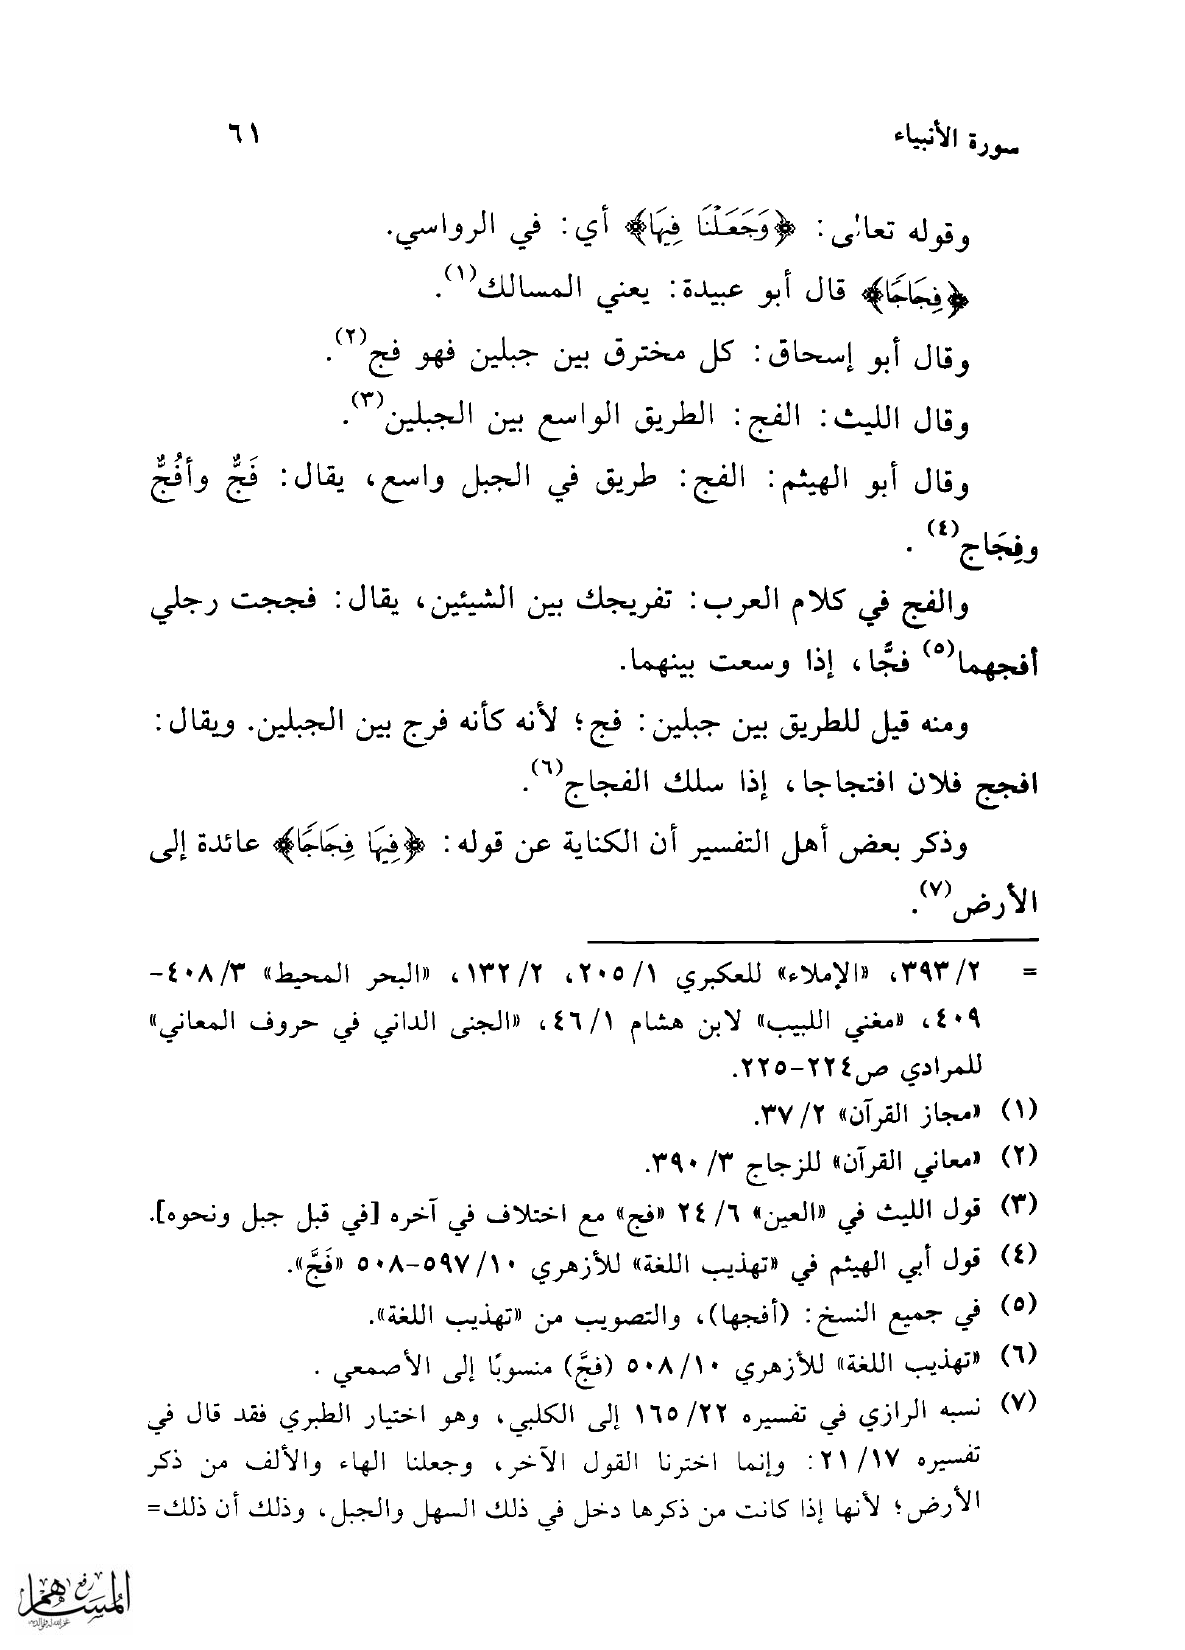 سورة الأنبياء ٦١
وقوله تعالى: ﴿وَجَعَلْنَا فِيهَا﴾ أي: في الرواسي.
﴿فِجَاجًا﴾ قال أبو عبيدة: يعني المسالك(١).
وقال أبو إسحاق: كل مخترق بين جبلين فهو فج(٢).
وقال الليث: الفج: الطريق الواسع بين الجبلين(٣).
وقال أبو الهيثم: الفج: طريق في الجبل واسع، يقال: فَجٌّ وأفُجٌّ
وفِجَاج(٤) .
والفج في كلام العرب: تفريجك بين الشيئين، يقال: فججت رجلي
أفجهما(٥) فجًّا، إذا وسعت بينهما.
ومنه قيل للطريق بين جبلين: فج؛ لأنه كأنه فرج بين الجبلين. ويقال:
افجج فلان افتجاجا، إذا سلك الفجاج(٦).
وذكر بعض أهل التفسير أن الكناية عن قوله: ﴿فِيهَا فِجَاجًا﴾ عائدة إلى
الأرض(٧).
= ٢/ ٣٩٣، «الإملاء» للعكبري ١/ ٢٠٥، ٢/ ١٣٢، «البحر المحيط» ٣/ ٤٠٨-
٤٠٩، «مغني اللبيب» لابن هشام ١/ ٤٦، «الجنى الداني في حروف المعاني»
للمرادي ص٢٢٤-٢٢٥.
(١) «مجاز القرآن» ٢/ ٣٧.
(٢) «معاني القرآن» للزجاج ٣/ ٣٩٠.
(٣) قول الليث في «العين» ٦/ ٢٤ «فج» مع اختلاف في آخره [في قبل جبل ونحوه].
(٤) قول أبي الهيثم في «تهذيب اللغة» للأزهري ١٠/ ٥٩٧-٥٠٨ «فَجَّ».
(٥) في جميع النسخ: (أفجها)، والتصويب من «تهذيب اللغة».
(٦) «تهذيب اللغة» للأزهري ١٠/ ٥٠٨ (فجَّ) منسوبًا إلى الأصمعي .
(٧) نسبه الرازي في تفسيره ٢٢/ ١٦٥ إلى الكلبي، وهو اختيار الطبري فقد قال في
تفسيره ١٧/ ٢١: وإنما اخترنا القول الآخر، وجعلنا الهاء والألف من ذكر
الأرض؛ لأنها إذا كانت من ذكرها دخل في ذلك السهل والجبل، وذلك أن ذلك=